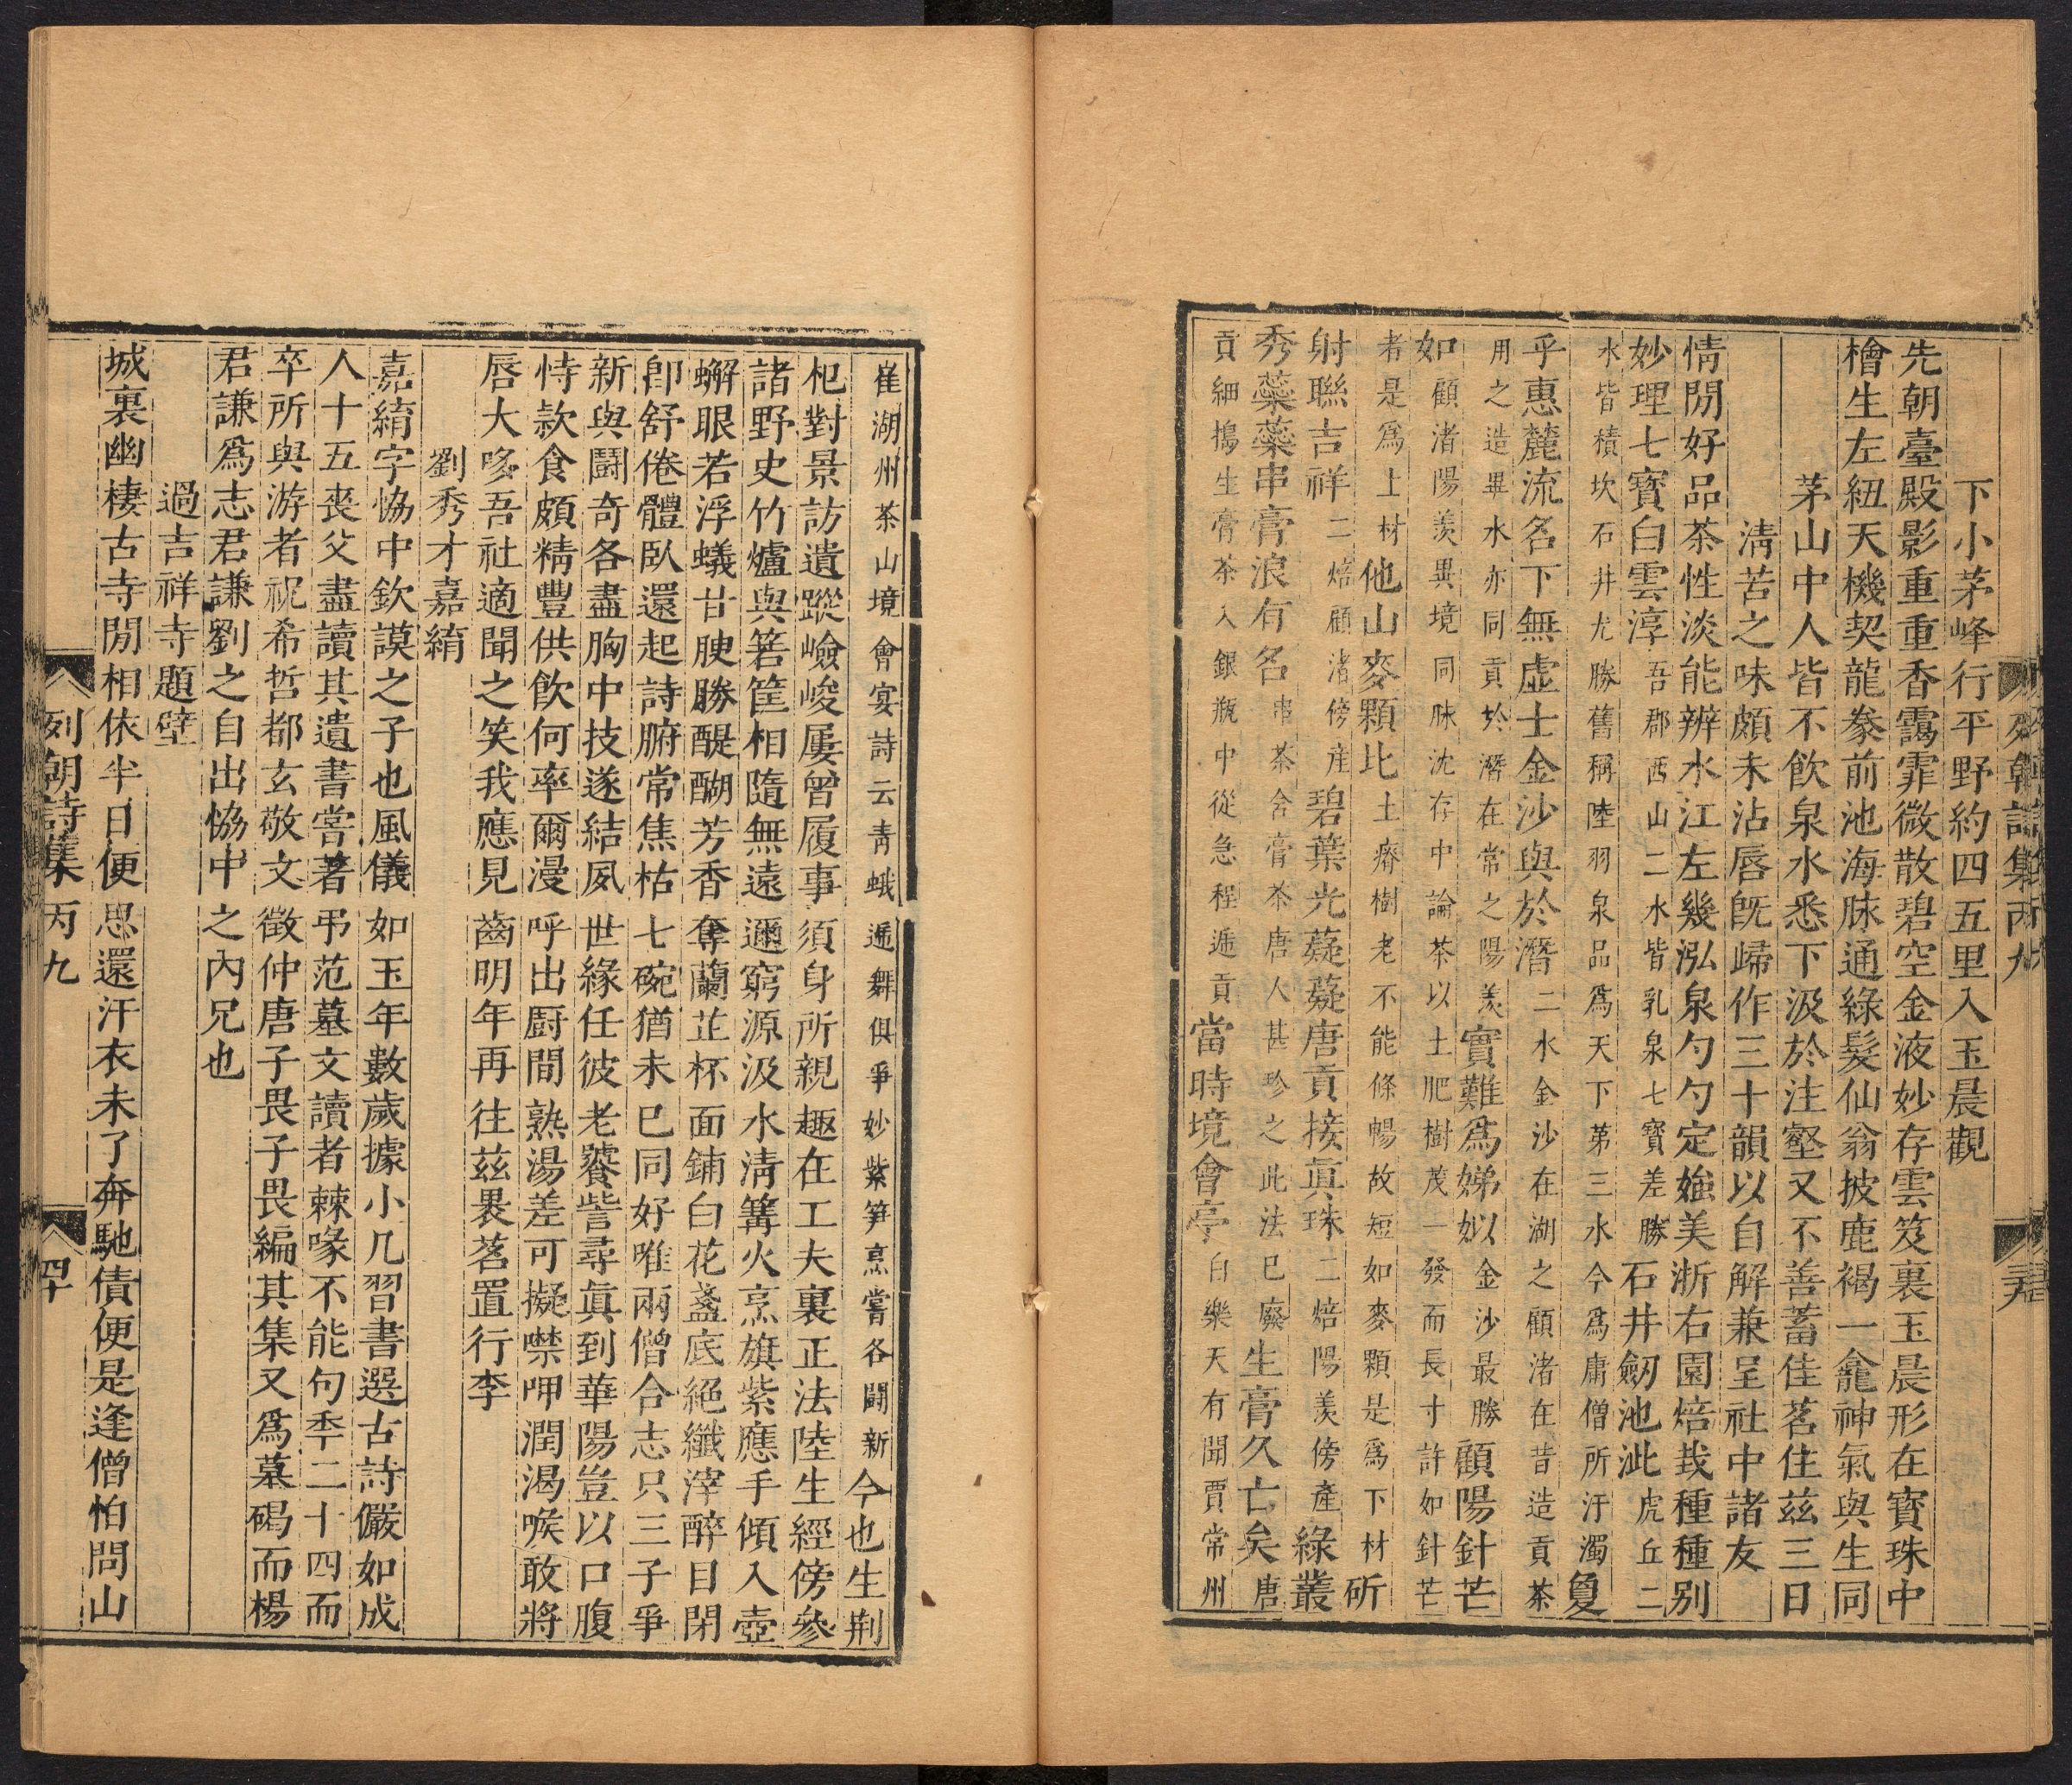 列朝詩集丙九
下小茅峰行平野約四五里入玉晨觀
先朝臺殿影重重香靄霏微散碧空金液妙存雲笈裏玉晨形在寶珠中
檜生左紐天機契龍豢前池海脉通綠髮仙翁披鹿褐一龕神氣與生同
茅山中人皆不飲泉水悉下汲於注壑又不善蓄佳茗住茲三日
淸苦之味頗未沾唇旣歸作三十韻以自解兼呈社中諸友
情閒好品茶性淡能辨水江左幾泓泉勺勺定媸美浙右園焙𢦤種種别
妙理七寶白雲淳吾郡西山二水皆乳泉七寶差勝石井劒池泚虎丘二
水皆積坎石井尤勝舊稱陸羽泉品爲天下第三水今爲庸僧所汙濁夐
乎惠麓流名下無虛士金沙與於潛二水金沙在湖之顧渚在昔造貢茶
用之造畢水亦同貢於潛在常之陽羨實難爲娣姒金沙最勝顧陽針芒
如顧渚陽羨異境同脉沈存中論茶以土肥樹茂一發而長寸許如針芒
者是爲上材他山麥顆比土瘠樹老不能條暢故短如麥顆是爲下材斫
射聯吉祥二焙顧渚傍産碧葉光薿薿唐貢接眞珠二焙陽羨傍產綠叢
秀蘂蘂串膏浪有名串茶含膏茶唐人甚珍之此法已廢生膏久亡矣唐
貢細搗生膏茶入銀瓶中從急程遞貢當時境會亭白樂天有聞賈常州
崔湖州茶山境會宴詩云靑蛾遞舞俱爭妙紫笋烹嘗各鬪新今也生荆
杞對景訪遺蹤嶮峻屢曾履事須身所親趣在工夫裏正法陸生經傍參
諸野史竹爐與箬筐相隨無遠邇窮源汲水淸篝火烹旗紫應手傾入壺
蠏眼若浮蟻甘腴勝醍醐芳香奪蘭芷杯面鋪白花盞底絕纖滓醉目閉
卽舒倦體臥還起詩腑常焦枯七碗猶未巳同好唯兩僧合志只三子爭
新與鬪奇各盡胸中技遂結夙世緣任彼老饕訾尋眞到華陽豈以口腹
恃款食頗精豐供飲何率爾漫呼出厨間熟湯差可擬噤呷潤渴喉敢將
唇大哆吾社適聞之笑我應見齒明年再往茲褁茗置行李
劉秀才嘉䋺
嘉䋺字恊中欽謨之子也風儀如玉年數歲據小几習書選古詩儼如成
人十五喪父盡讀其遺書嘗著弔范墓文讀者棘喙不能句年二十四而
卒所與游者祝希哲都玄敬文徵仲唐子畏子畏編其集又爲墓碣而楊
君謙爲志君謙劉之自出恊中之內兄也
過吉祥寺題壁
城裏幽棲古寺閒相依半日便思還汗衣未了奔馳債便是逢僧怕問山
列朝詩集丙九
四十